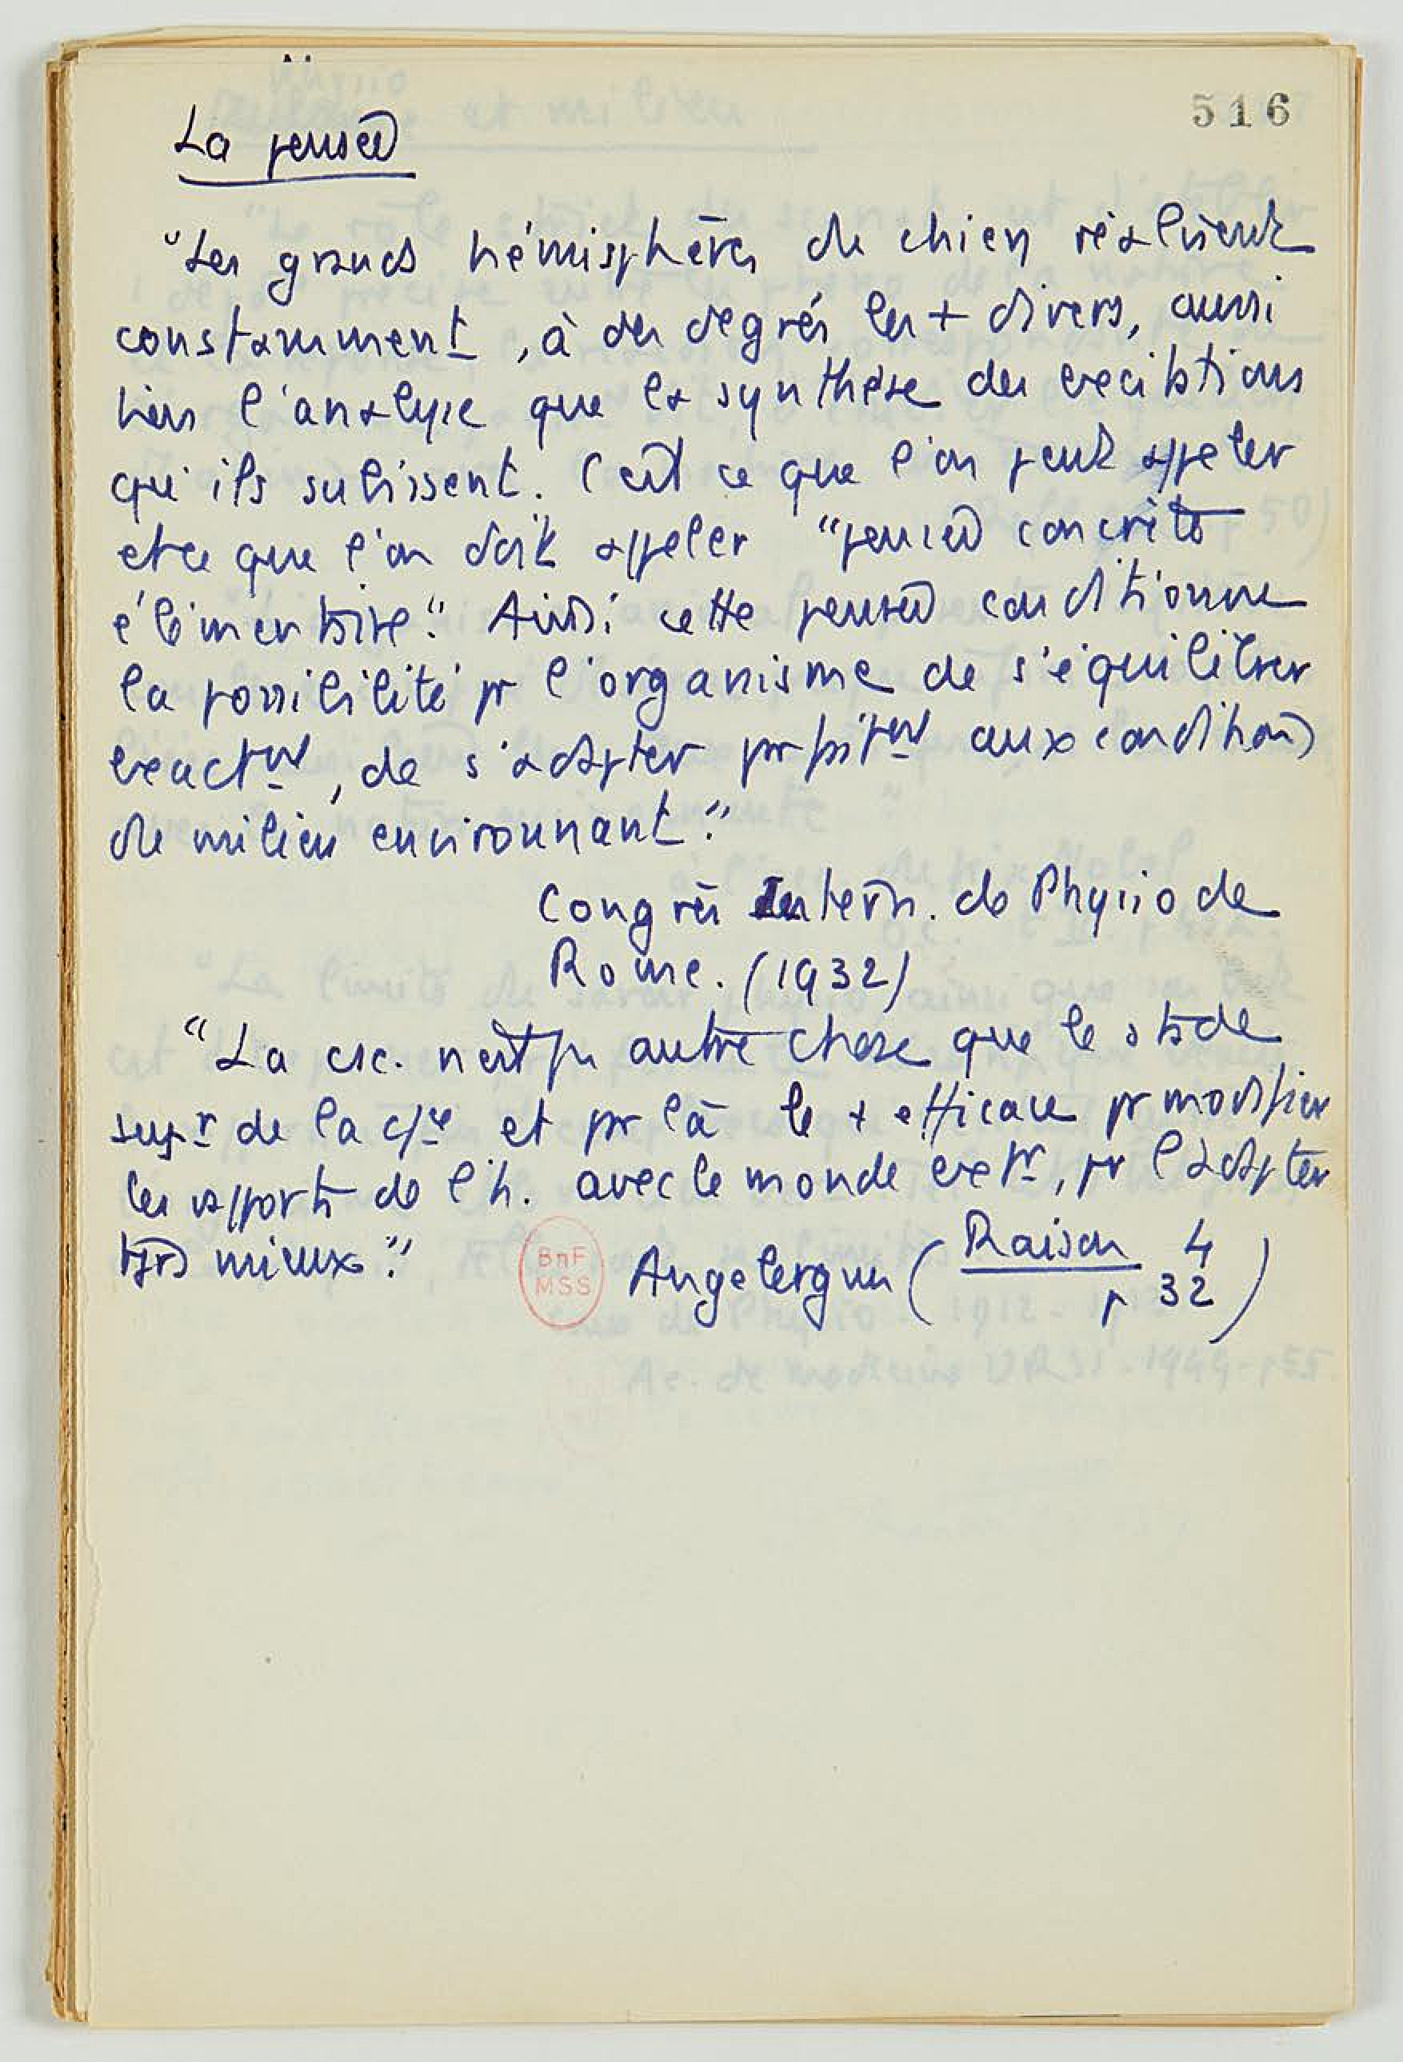 516
La pensée
"Les grands hémisphères du chien réalisent
constamment, à des degrés les + divers, aussi
bien l'analyse que la synthèse des excitations
qu'ils subissent. C'est ce que l'on peut appeler
et ce que l'on doit appeler "pensée concrète
élémentaire". Ainsi cette pensée conditionne
la possibilité pr l'organisme de s'équilibrer
exactmt, de s'adapter parfaitmt aux conditions
du milieu environnant."
Congrès Intern. de Physio de
Rome. (1932)
"La csc. n'est pas autre chose que le stade
supr de la cpte et par là le + efficace pr modifier
les rapports de l'h. avec le monde extr, pr l'adapter
tjrs mieux."
BnF
MSS
Angelergues (Raison 4
p 32)